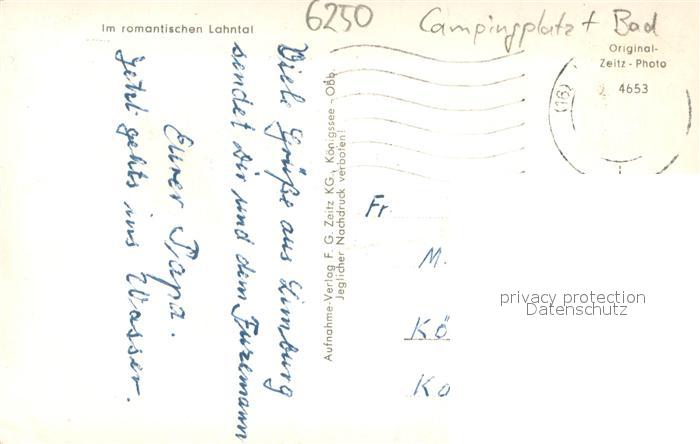 6250 Campingplatz + Bad
Im romantischen Lahntal
Original-
Zeitz-Photo
4653
(16)
Viele Grüße aus Limburg
sendet Dir und dem
Eurer Papa.
Jetzt gehts ins Wasser.
Aufnahme-Verlag F. G. Zeitz KG., Königssee - Obb.
Jeglicher Nachdruck verboten!
Fr.
M.
Kö
Ko
privacy protection
Datenschutz